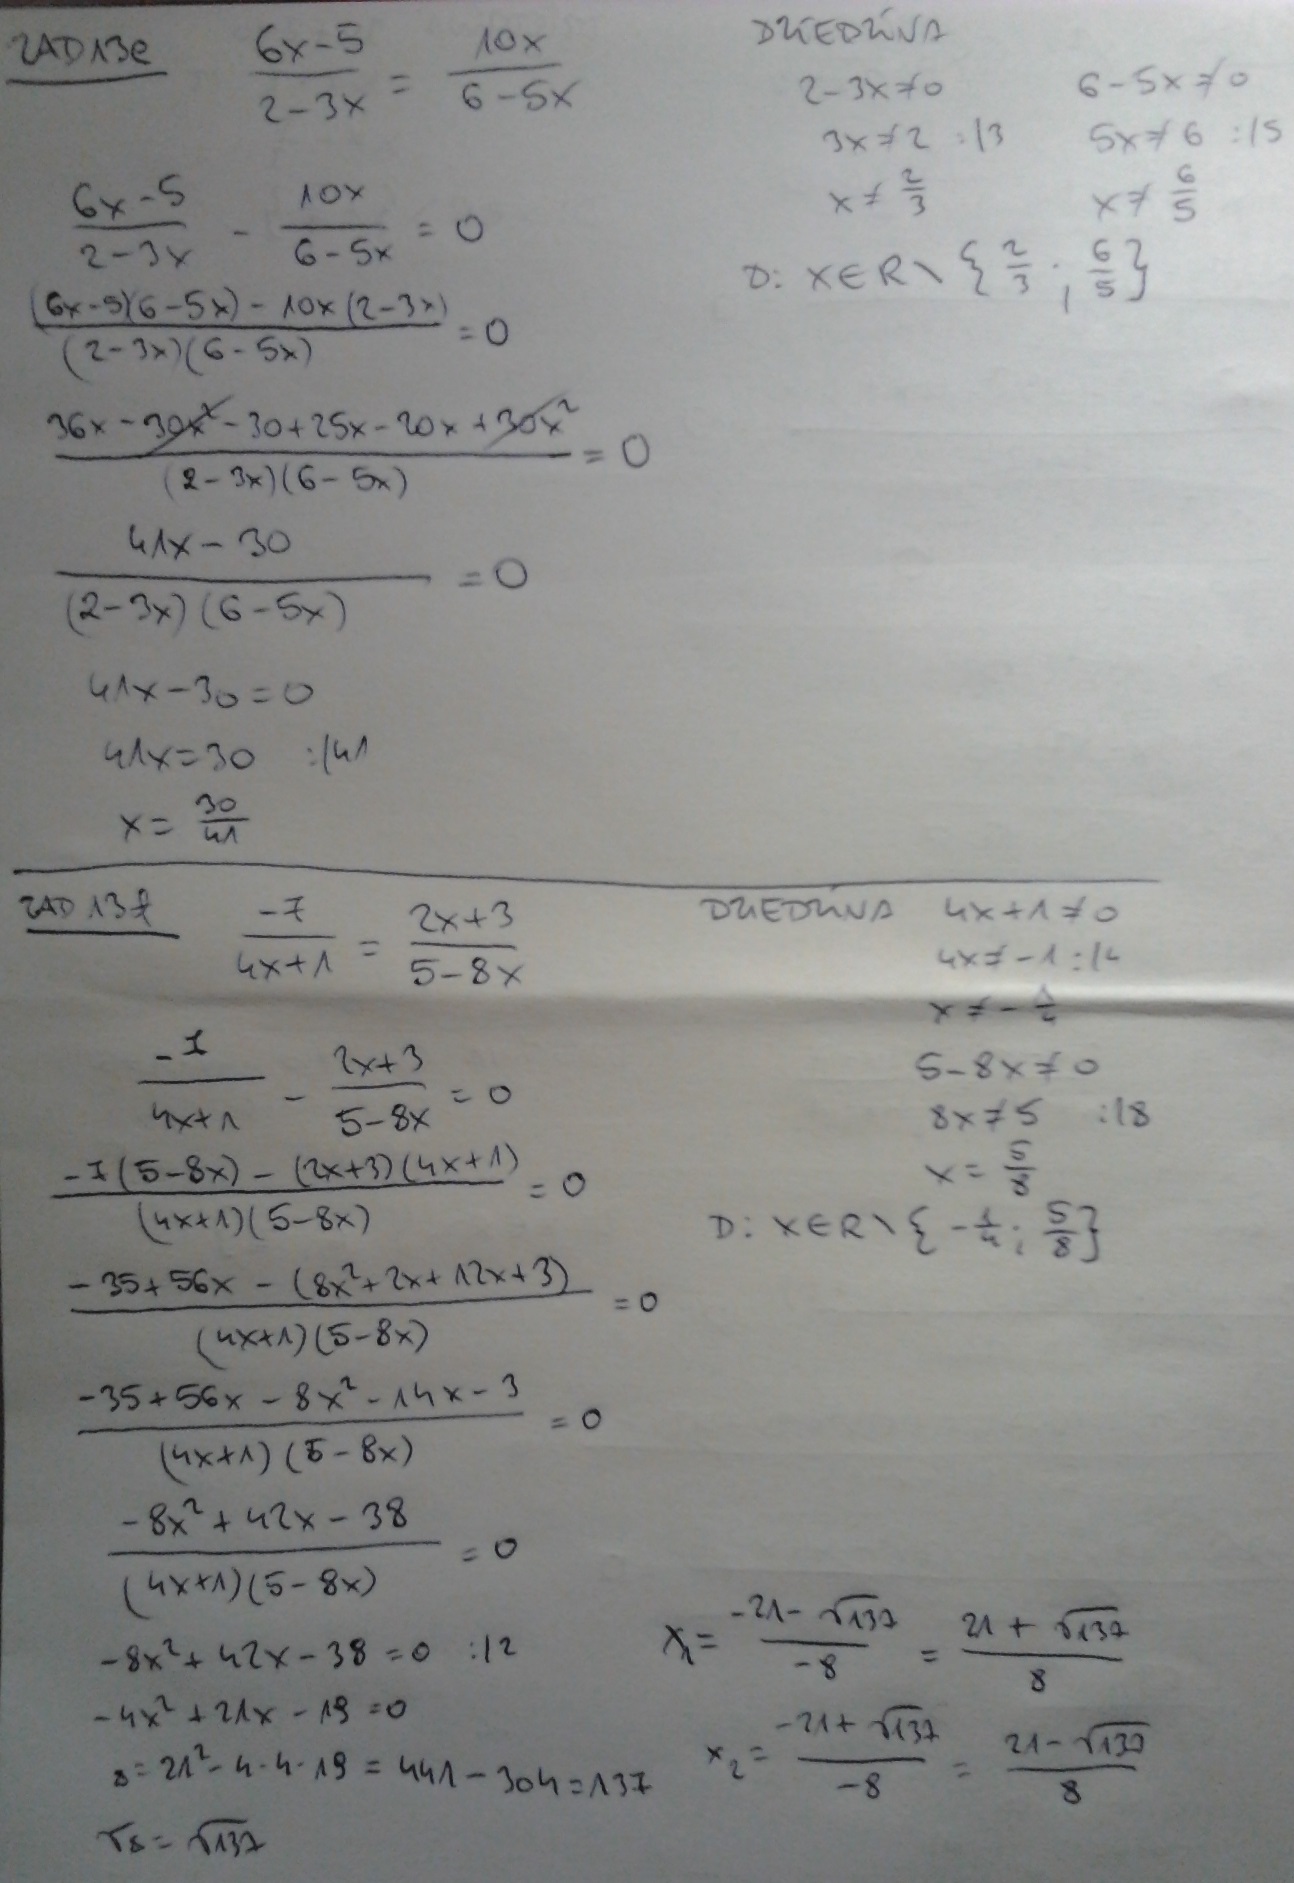 ZAD 13e (6x-5)/(2-3x) = 10x/(6-5x)
DZIEDZINA
2-3x≠0 6-5x≠0
3x≠2 :/3 5x≠6 :/5
x≠2/3 x≠6/5
D: x∈R\{2/3; 6/5}
(6x-5)/(2-3x) - 10x/(6-5x) = 0
((6x-5)(6-5x) - 10x(2-3x))/((2-3x)(6-5x)) = 0
(36x-30x²-30+25x-20x+30x²)/((2-3x)(6-5x)) = 0
(41x-30)/((2-3x)(6-5x)) = 0
41x-30=0
41x=30 :/41
x=30/41
ZAD 13f -7/(4x+1) = (2x+3)/(5-8x)
DZIEDZINA 4x+1≠0
4x≠-1 :/4
x≠-1/4
5-8x≠0
8x≠5 :/8
x=5/8
D: x∈R\{-1/4; 5/8}
-7/(4x+1) - (2x+3)/(5-8x) = 0
(-7(5-8x) - (2x+3)(4x+1))/((4x+1)(5-8x)) = 0
(-35+56x-(8x²+2x+12x+3))/((4x+1)(5-8x)) = 0
(-35+56x-8x²-14x-3)/((4x+1)(5-8x)) = 0
(-8x²+42x-38)/((4x+1)(5-8x)) = 0
-8x²+42x-38=0 :/2
-4x²+21x-19=0
Δ=21²-4·4·19=441-304=137
√Δ=√137
x₁=(-21-√137)/-8 = (21+√137)/8
x₂=(-21+√137)/-8 = (21-√137)/8